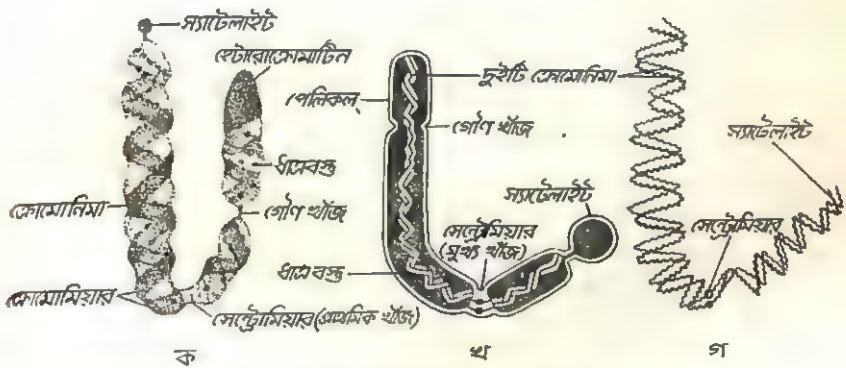 স্যাটেলাইট
হেটারোক্রোমাটিন
ক্রোমোনিমা
ক্রোমোমিয়ার
ধাত্রবস্তু
গৌণ খাঁজ
সেন্ট্রোমিয়ার (প্রাথমিক খাঁজ)
ক
পেলিকল্
দুইটি ক্রোমোনিমা
গৌণ খাঁজ
স্যাটেলাইট
সেন্ট্রোমিয়ার
(মুখ্য খাঁজ)
ধাত্রবস্তু
খ
স্যাটেলাইট
সেন্ট্রোমিয়ার
গ